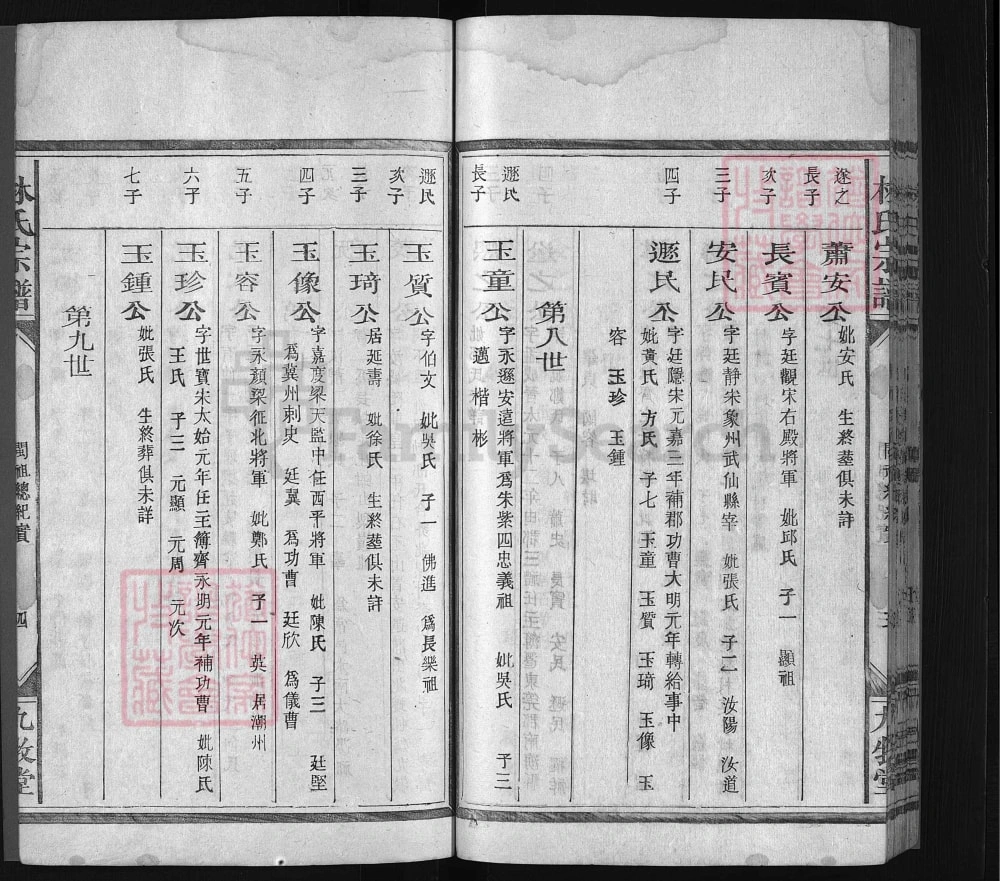 林氏宗譜
九牧堂
遂之長子 蕭安公 妣安氏 生終塟俱未詳
次子 長賓公 字廷觀宋右殿將軍 妣邱氏 子一 顯祖
三子 安民公 字廷静宋象州武仙縣宰 妣張氏 子二 汝陽 汝道
四子 遯民公 字廷隱宋元嘉三年補郡功曹大明元年轉給事中
妣黄氏 方氏 子七 玉童 玉質 玉琦 玉像 玉
容 玉珍 玉鍾
第八世
遯民長子 玉童公 字永遜安遠將軍爲朱紫四忠義祖 妣吳氏 子三
邁 楷 彬
遯民次子 玉質公 字伯文 妣吳氏 子一 佛進 爲長樂祖
三子 玉琦公 居延壽 妣徐氏 生終塟俱未詳
四子 玉像公 字嘉度梁天監中任西平將軍 妣陳氏 子三 廷堅
爲冀州刺史 廷翼 爲功曹 廷欣 爲儀曹
五子 玉容公 字永顏梁征北將軍 妣鄭氏 子一 英 居潮州
六子 玉珍公 字世寶宋太始元年任主簿齊永明元年補功曹 妣陳氏
王氏 子三 元顯 元周 元次
七子 玉鍾公 妣張氏 生終葬俱未詳
第九世
林氏宗譜
閩祖總紀實
四
九牧堂
FamilySearch